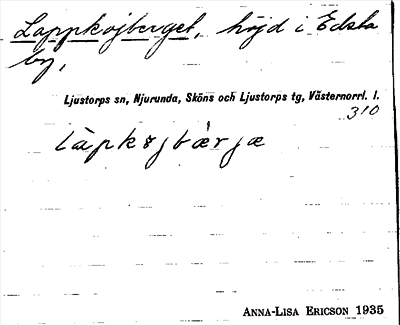 Lappkojberget, höjd i Edsta
by,
Ljustorps sn, Njurunda, Sköns och Ljustorps tg, Västernorrl. l.
310
ANNA-LISA ERICSON 1935